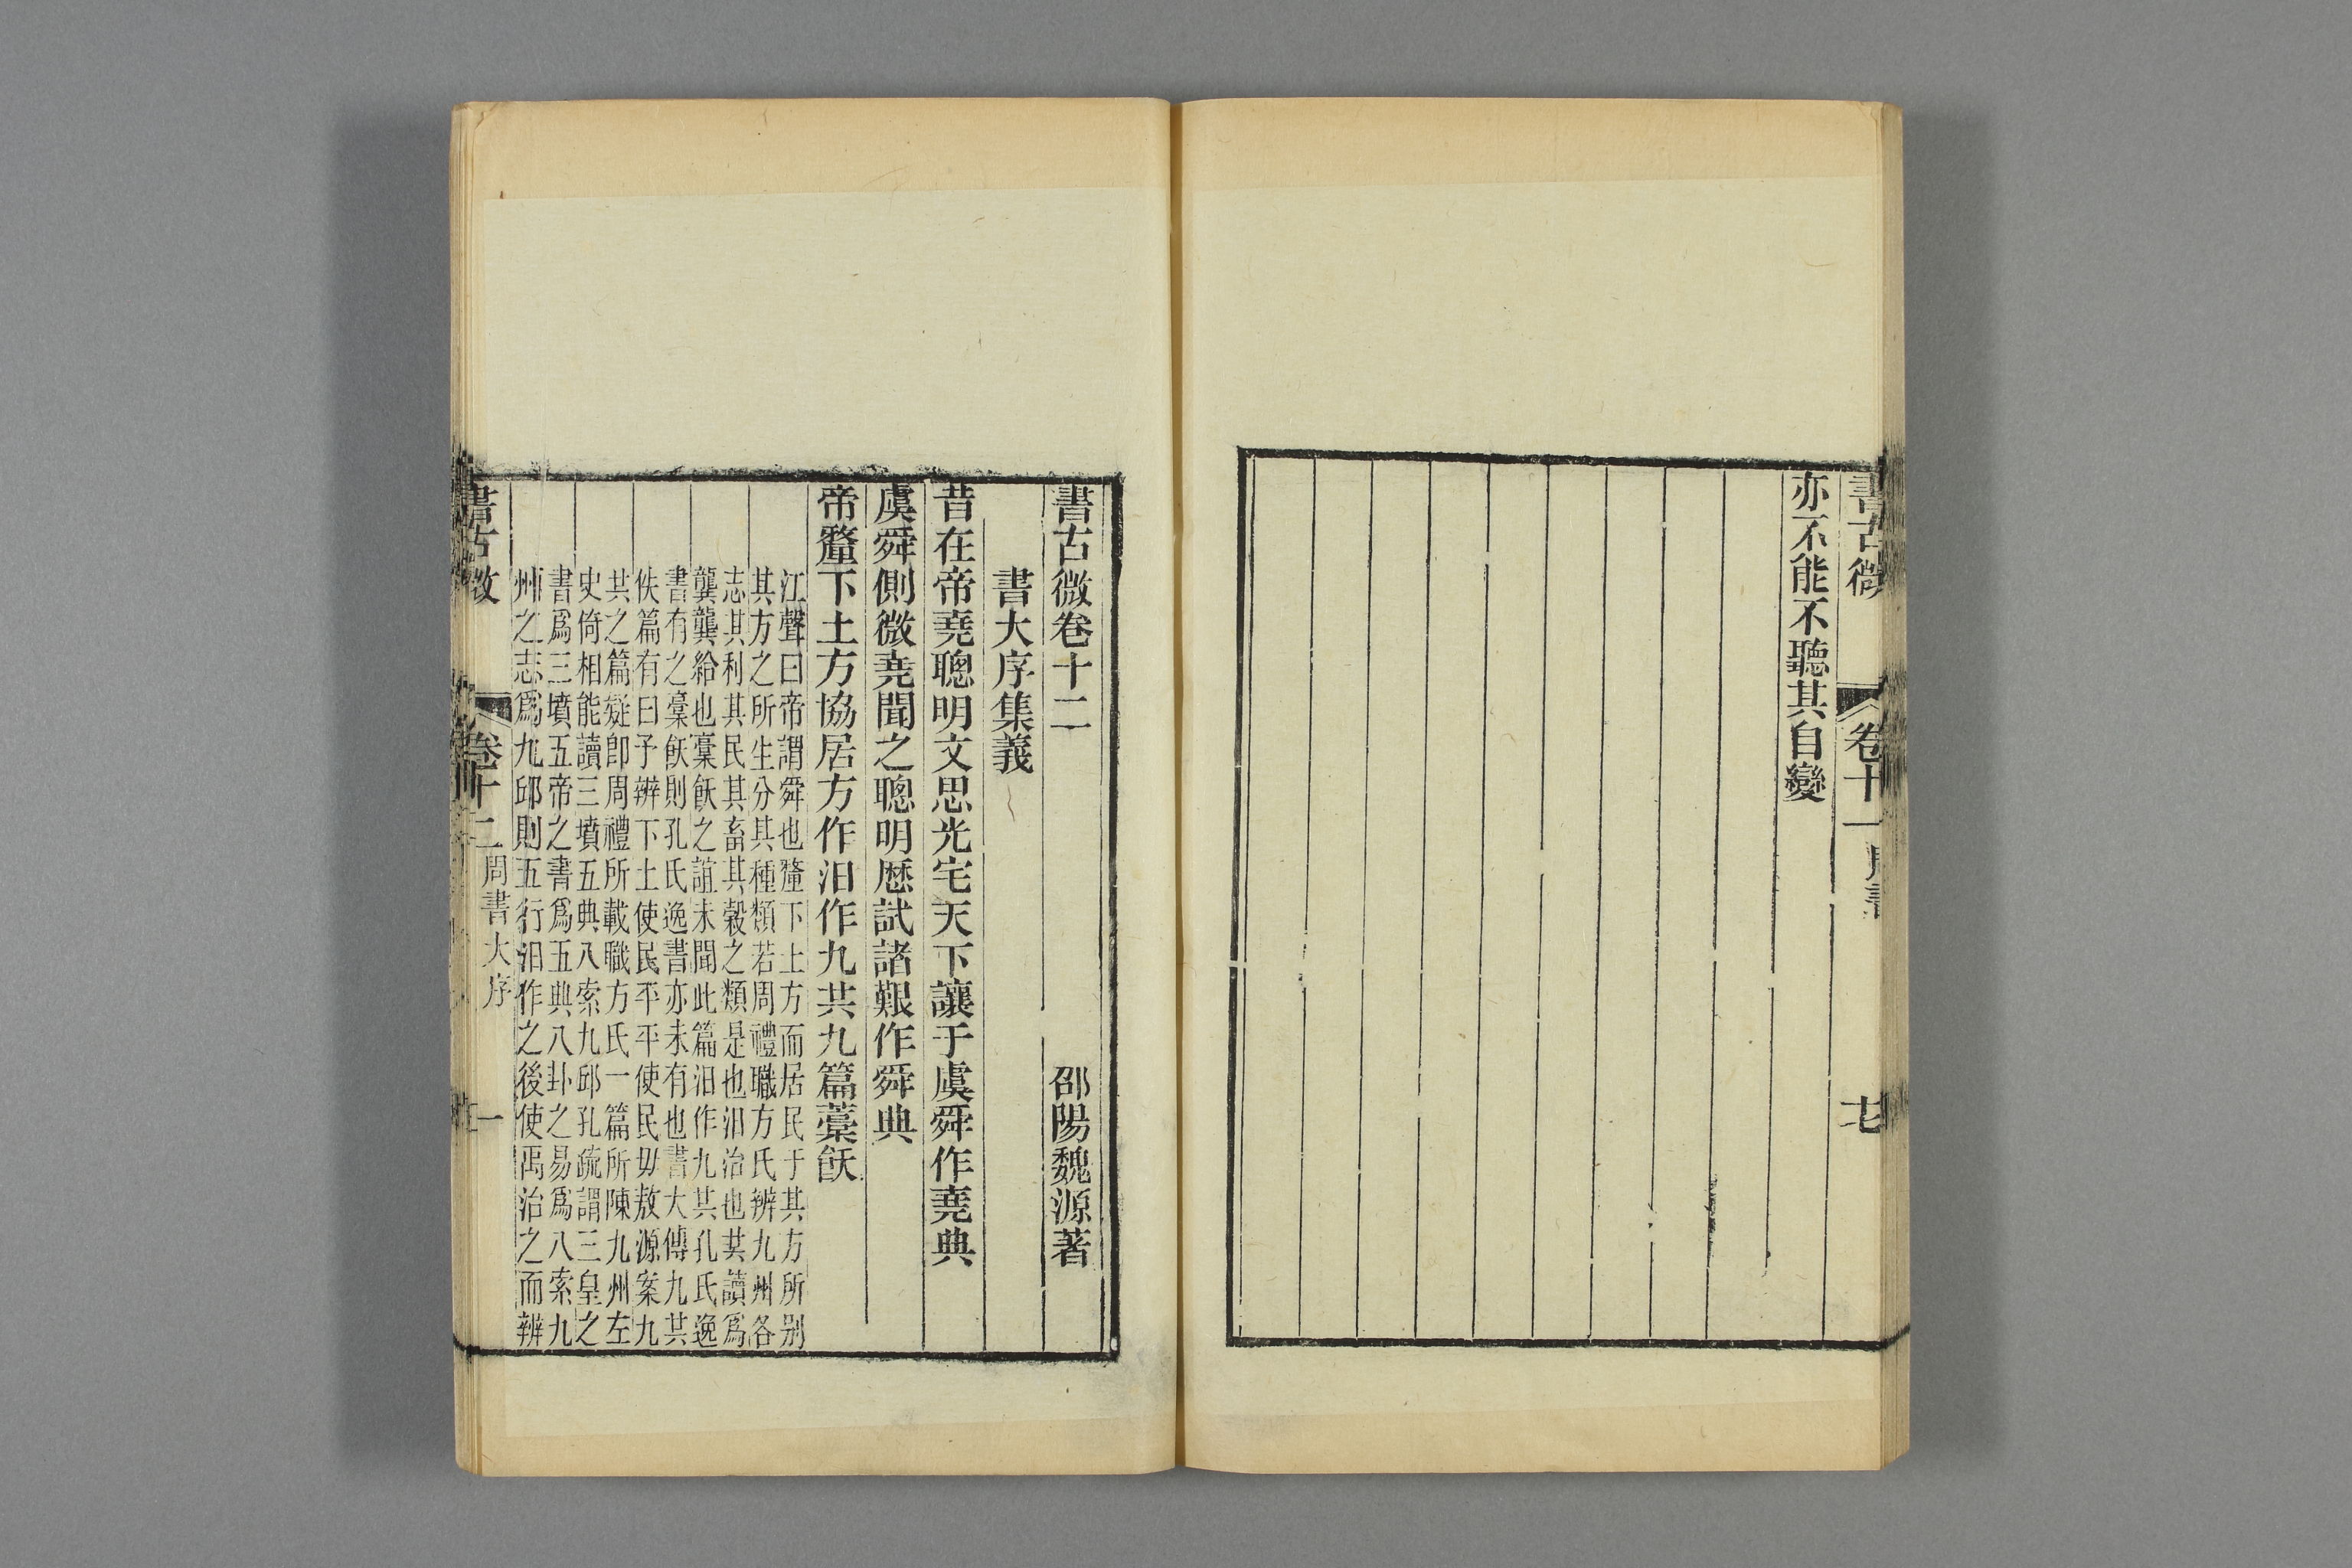 書古微
卷十一
周書
亦不能不聽其自變
書古微卷十二
邵陽魏源著
書大序集義
昔在帝堯聰明文思光宅天下讓于虞舜作堯典
虞舜側微堯聞之聰明歷試諸艱作舜典
帝釐下土方協居方作汨作九共九篇藁飫
江聲曰帝謂舜也釐下土方而居民于其方所別
其方之所生分其種類若周禮職方氏辨九州各
志其利其民其畜其穀之類是也汨治也共讀爲
龔龔給也藁飫之誼未聞此篇汨作九共孔氏逸
書有之藁飫則孔氏逸書亦未有也書大傳九共
佚篇有曰予辨下土使民平平使民毋敖源案九
共之篇變卽周禮所載職方氏一篇所陳九州左
史倚相能讀三墳五典八索九邱孔疏謂三皇之
書爲三墳五帝之書爲五典八卦之易爲八索九
州之志爲九邱則五行汨作之後使禹治之而辨
書古微
卷十二
周書大序
一